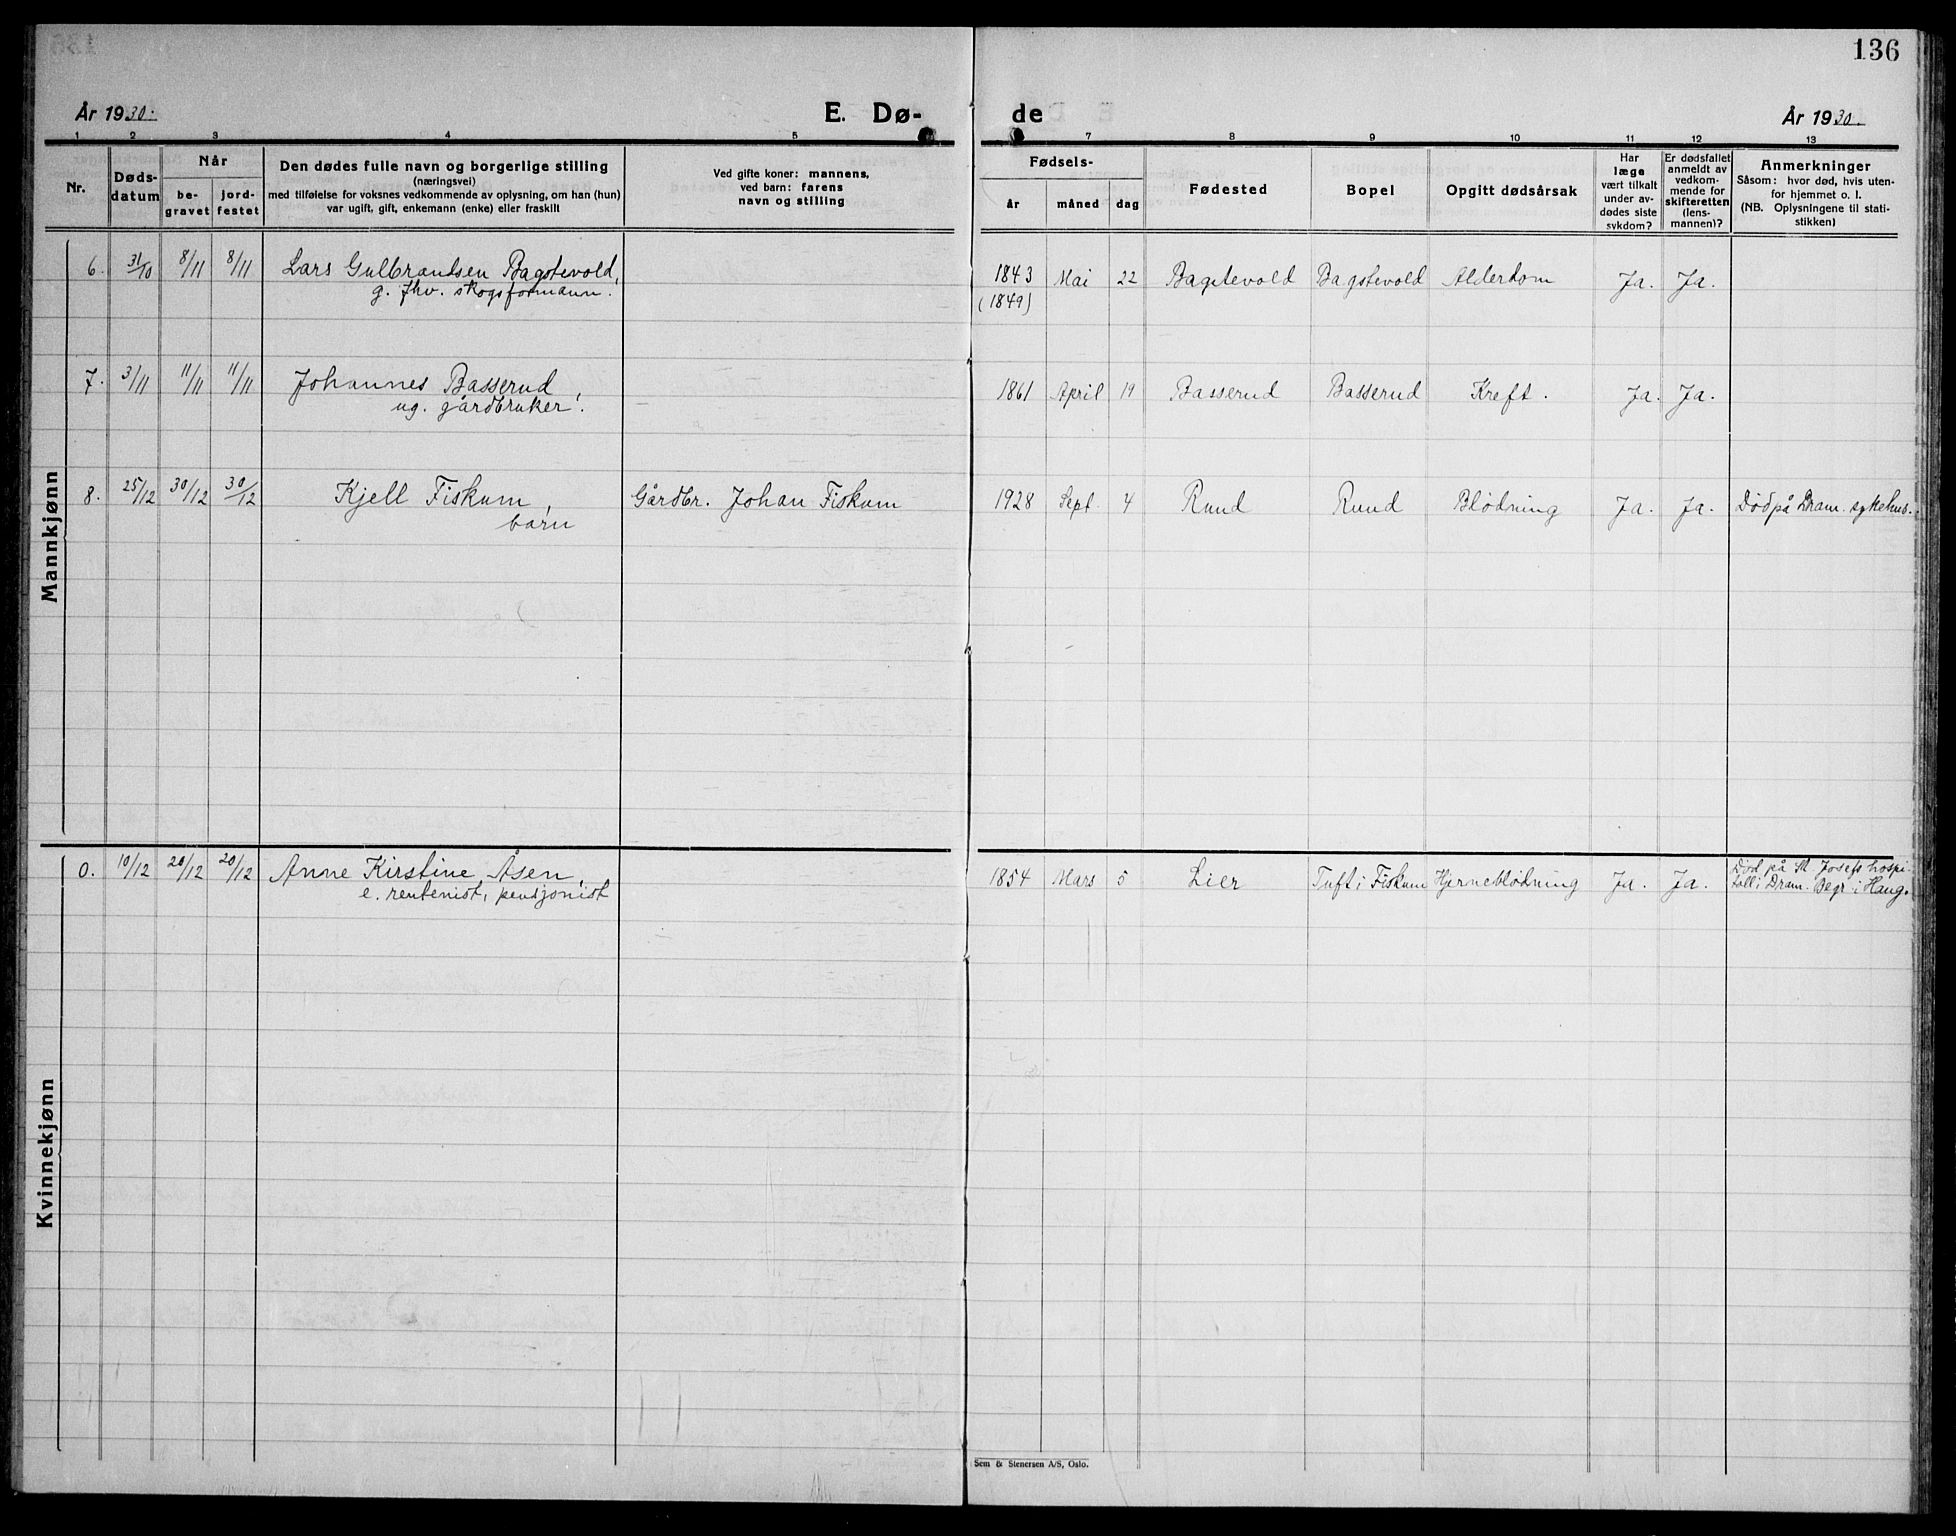 136
År 1930.
E. Dø-
de
År 1930.
1 2 3 4 5 7 8 9 10 11 12 13
Nr.
Døds-
datum
Når
be-
gravet
jord-
festet
Den dødes fulle navn og borgerlige stilling
(næringsvei)
med tilføielse for voksnes vedkommende av oplysning, om han (hun)
var ugift, gift, enkemann (enke) eller fraskilt
Ved gifte koner: mannens,
ved barn: farens
navn og stilling
Fødsels-
år
måned
dag
Fødested
Bopel
Opgitt dødsårsak
Har
læge
vært tilkalt
under av-
dødes siste
sykdom?
Er dødsfallet
anmeldt av
vedkom-
mende for
skifteretten
(lens-
mannen)?
Anmerkninger
Såsom: hvor død, hvis uten-
for hjemmet o. l.
(NB. Oplysningene til stati-
stikken)
Mannkjønn
6. 31/10 8/11 8/11 Lars Gulbrandsen Bagstevold, 1843 Mai 22 Bagstevold Bagstevold Alderdom Ja. Ja.
g. fhv. skogsformann. (1849)
7. 3/11 11/11 11/11 Johannes Basserud, 1861 April 19 Basserud Basserud Kreft. Ja. Ja.
ug. gårdbruker.
8. 25/12 30/12 30/12 Kjell Fiskum, Gårdbr. Johan Fiskum 1928 Sept. 4 Rund Rund Blödning Ja. Ja. Död på Dram. sykehus.
barn
Kvinnekjønn
0. 10/12 20/12 20/12 Anne Kirstine Åsen, 1854 Mars 5 Lier Tuft i Fiskum Hjerneblödning Ja. Ja. Död på St. Josefs hospi-
e. rentenist, pensjonist tall i Dram. Begr. i Haug.
Sem & Stenersen A/S, Oslo.